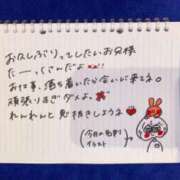 お久しぶりってしたいお兄様
たーっくさんだよ
お仕事、落ち着いたら会いに来てネ。
頑張りすぎダメよ。
れんれんと息抜きしようネ
(今日の名刺
イラスト